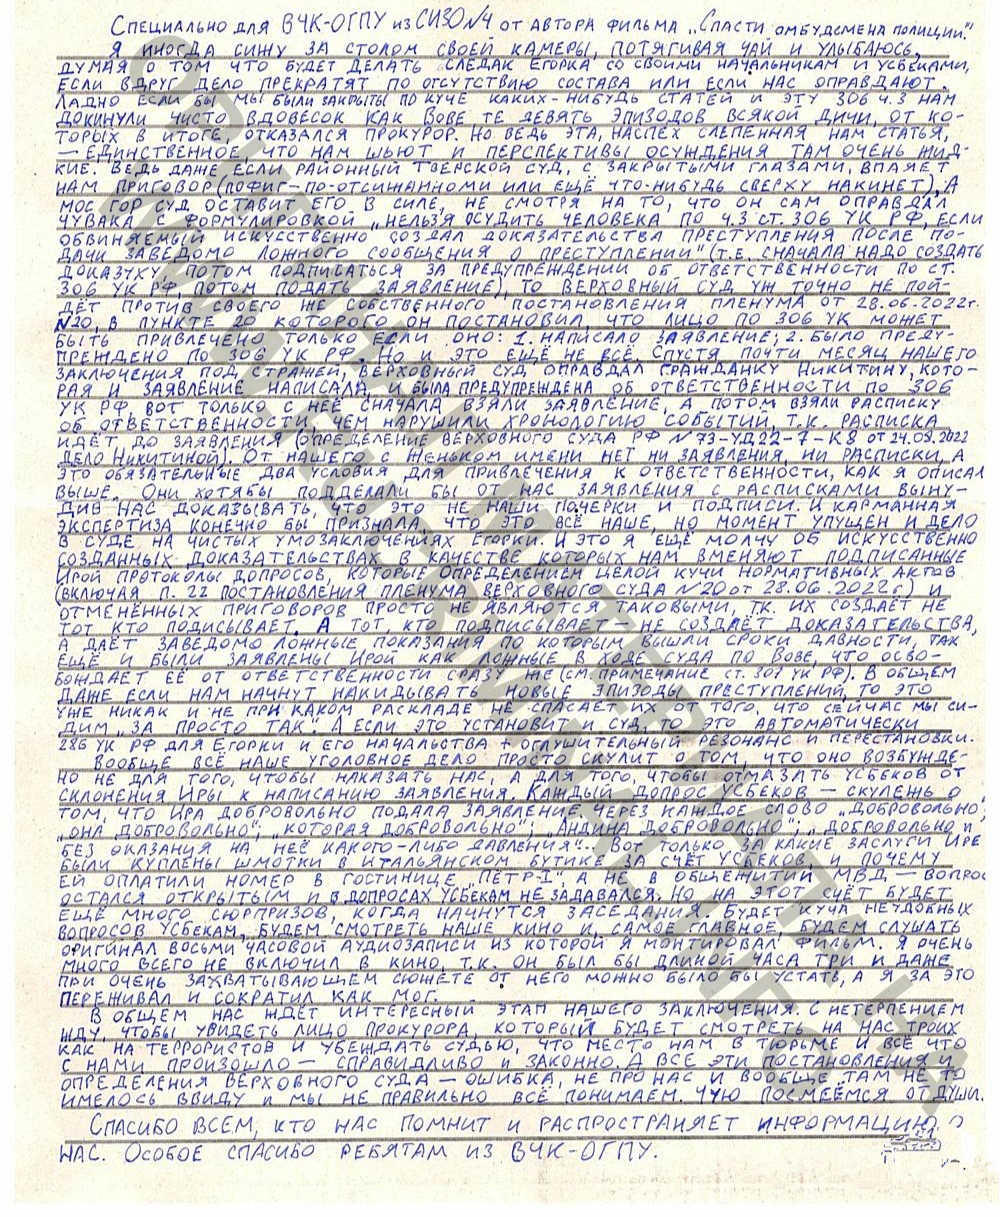 Специально для ВЧК-ОГПУ из СИЗО №4 от автора фильма „Спасти омбудсмена полиции."
Я иногда сижу за столом своей камеры, потягивая чай и улыбаюсь,
думая о том что будет делать следак Егорка со своими начальникам и усбеками,
если вдруг дело прекратят по отсутствию состава или если нас оправдают.
Ладно если бы мы были закрыты по куче каких-нибудь статей и эту 306 ч.3 нам
докинули чисто вдовесок как Вове те девять эпизодов всякой дичи, от ко-
торых в итоге, отказался прокурор. Но ведь эта, наспех слепенная нам статья,
— единственное, что нам шьют и перспективы осуждения там очень жид-
кие. Ведь даже если районный Тверской суд, с закрытыми глазами, впаяет
нам приговор (пофиг-по-отсижанноми или ещё что-нибудь сверху накинет), а
Мосгорсуд оставит его в силе, не смотря на то, что он сам оправдал
чувака с формулировкой „нельзя осудить человека по ч.3 ст. 306 УК РФ, если
обвиняемый искусственно создал доказательства преступления после по-
дачи заведомо ложного сообщения о преступлении" (т.е. сначала надо создать
доказуху, потом подписаться за предупреждении об ответственности по ст.
306 УК РФ, потом подать заявление), то Верховный суд уж точно не пой-
дёт против своего же собственного постановления пленума от 28.06.2022г.
№20, в пункте 20 которого он постановил, что лицо по 306 УК может
быть привлечено только если оно: 1. написало заявление; 2. было преду-
преждено по 306 УК РФ. Но и это ещё не всё. Спустя почти месяц нашего
заключения под стражей, Верховный суд оправдал гражданку Никитину, кото-
рая и заявление написала, и была предупреждена об ответственности по 306
УК РФ, вот только с неё сначала взяли заявление, а потом взяли расписку
об ответственности, чем нарушили хронологию событий, т.к. расписка
идёт до заявления (определение Верховного суда РФ № 73-УД22-7-К8 от 24.08.2022
дело Никитиной). От нашего с Женьком имени нет ни заявления, ни расписки, а
это обязательные два условия для привлечения к ответственности, как я описал
выше. Они хотябы подделали бы от нас заявления с расписками выну-
див нас доказывать, что это не наши почерки и подписи. И карманная
экспертиза конечно бы признала, что это всё наше, но момент упущен и дело
в суде на чистых умозаключениях Егорки. И это я ещё молчу об искусственно
созданных доказательствах в качестве которых нам вменяют подписанные
Ирой протоколы допросов, которые определением целой кучи нормативных актов
(включая п. 22 постановления пленума Верховного суда №20 от 28.06.2022г) и
отменённых приговоров просто не являются таковыми, т.к. их создаёт не
тот кто подисывает. А тот, кто подписывает — не создаёт доказательства,
а даёт заведомо ложные показания по которым вышли сроки давности, так
ещё и были заявлены Ирой как ложные в ходе суда по Вове, что осво-
бождает её от ответственности сразу же (см. примечание ст. 307 УК РФ). В общем
даже если нам начнут накидывать новые эпизоды преступлений, то это
уже никак и не при каком раскладе не спасает их от того, что сейчас мы си-
дим „за просто так". А если это установит и суд, то это автоматически
286 УК РФ для Егорки и его начальства + оглушительный резонанс и перестановки.
Вообще всё наше уголовное дело просто скулит о том, что оно возбужде-
но не для того, чтобы наказать нас, а для того, чтобы отмазать усбеков от
склонения Иры к написанию заявления. Каждый допрос усбеков — скулёшь о
том, что Ира добровольно подала заявление через каждое слово „добровольно",
„она добровольно"; „которая добровольно"; „Андина добровольно"; „добровольно и
без оказания на неё какого-либо давления"... Вот только за какие заслуги Ире
были куплены шмотки в итальянском бутике за счёт усбеков, и почему
ей оплатили номер в гостинице „Пётр-I", а не в общежитии МВД — вопрос
остался открытым и в допросах усбекам не задавался. Но на этот счёт будет
ещё много сюрпризов, когда начнутся заседания. Будет куча неудобных
вопросов усбекам, будем смотреть наше кино и, самое главное, будем слушать
оригинал восьми часовой аудиозаписи из которой я монтировал фильм. Я очень
много всего не включил в кино, т.к. он был бы длиной часа три и даже
при очень захватывающем сюжете от него можно было бы устать, а я за это
переживал и сократил как мог.
В общем нас ждёт интересный этап нашего заключения. С нетерпением
жду, чтобы увидеть лицо прокурора, который будет смотреть на нас троих
как на террористов и убеждать судью, что место нам в тюрьме и всё что
с нами произошло — справидливо и законно. А все эти постановления и
определения Верховного суда — ошибка, не про нас и вообще там не то
имелось ввиду и мы не правильно всё понимаем. Чую посмеёмся от души.
Спасибо всем, кто нас помнит и распространяет информацию о
нас. Особое спасибо ребятам из ВЧК-ОГПУ.
ОРИГИНАЛ МАТЕРИАЛА НА
WWW.RUCRIMINAL.INFO